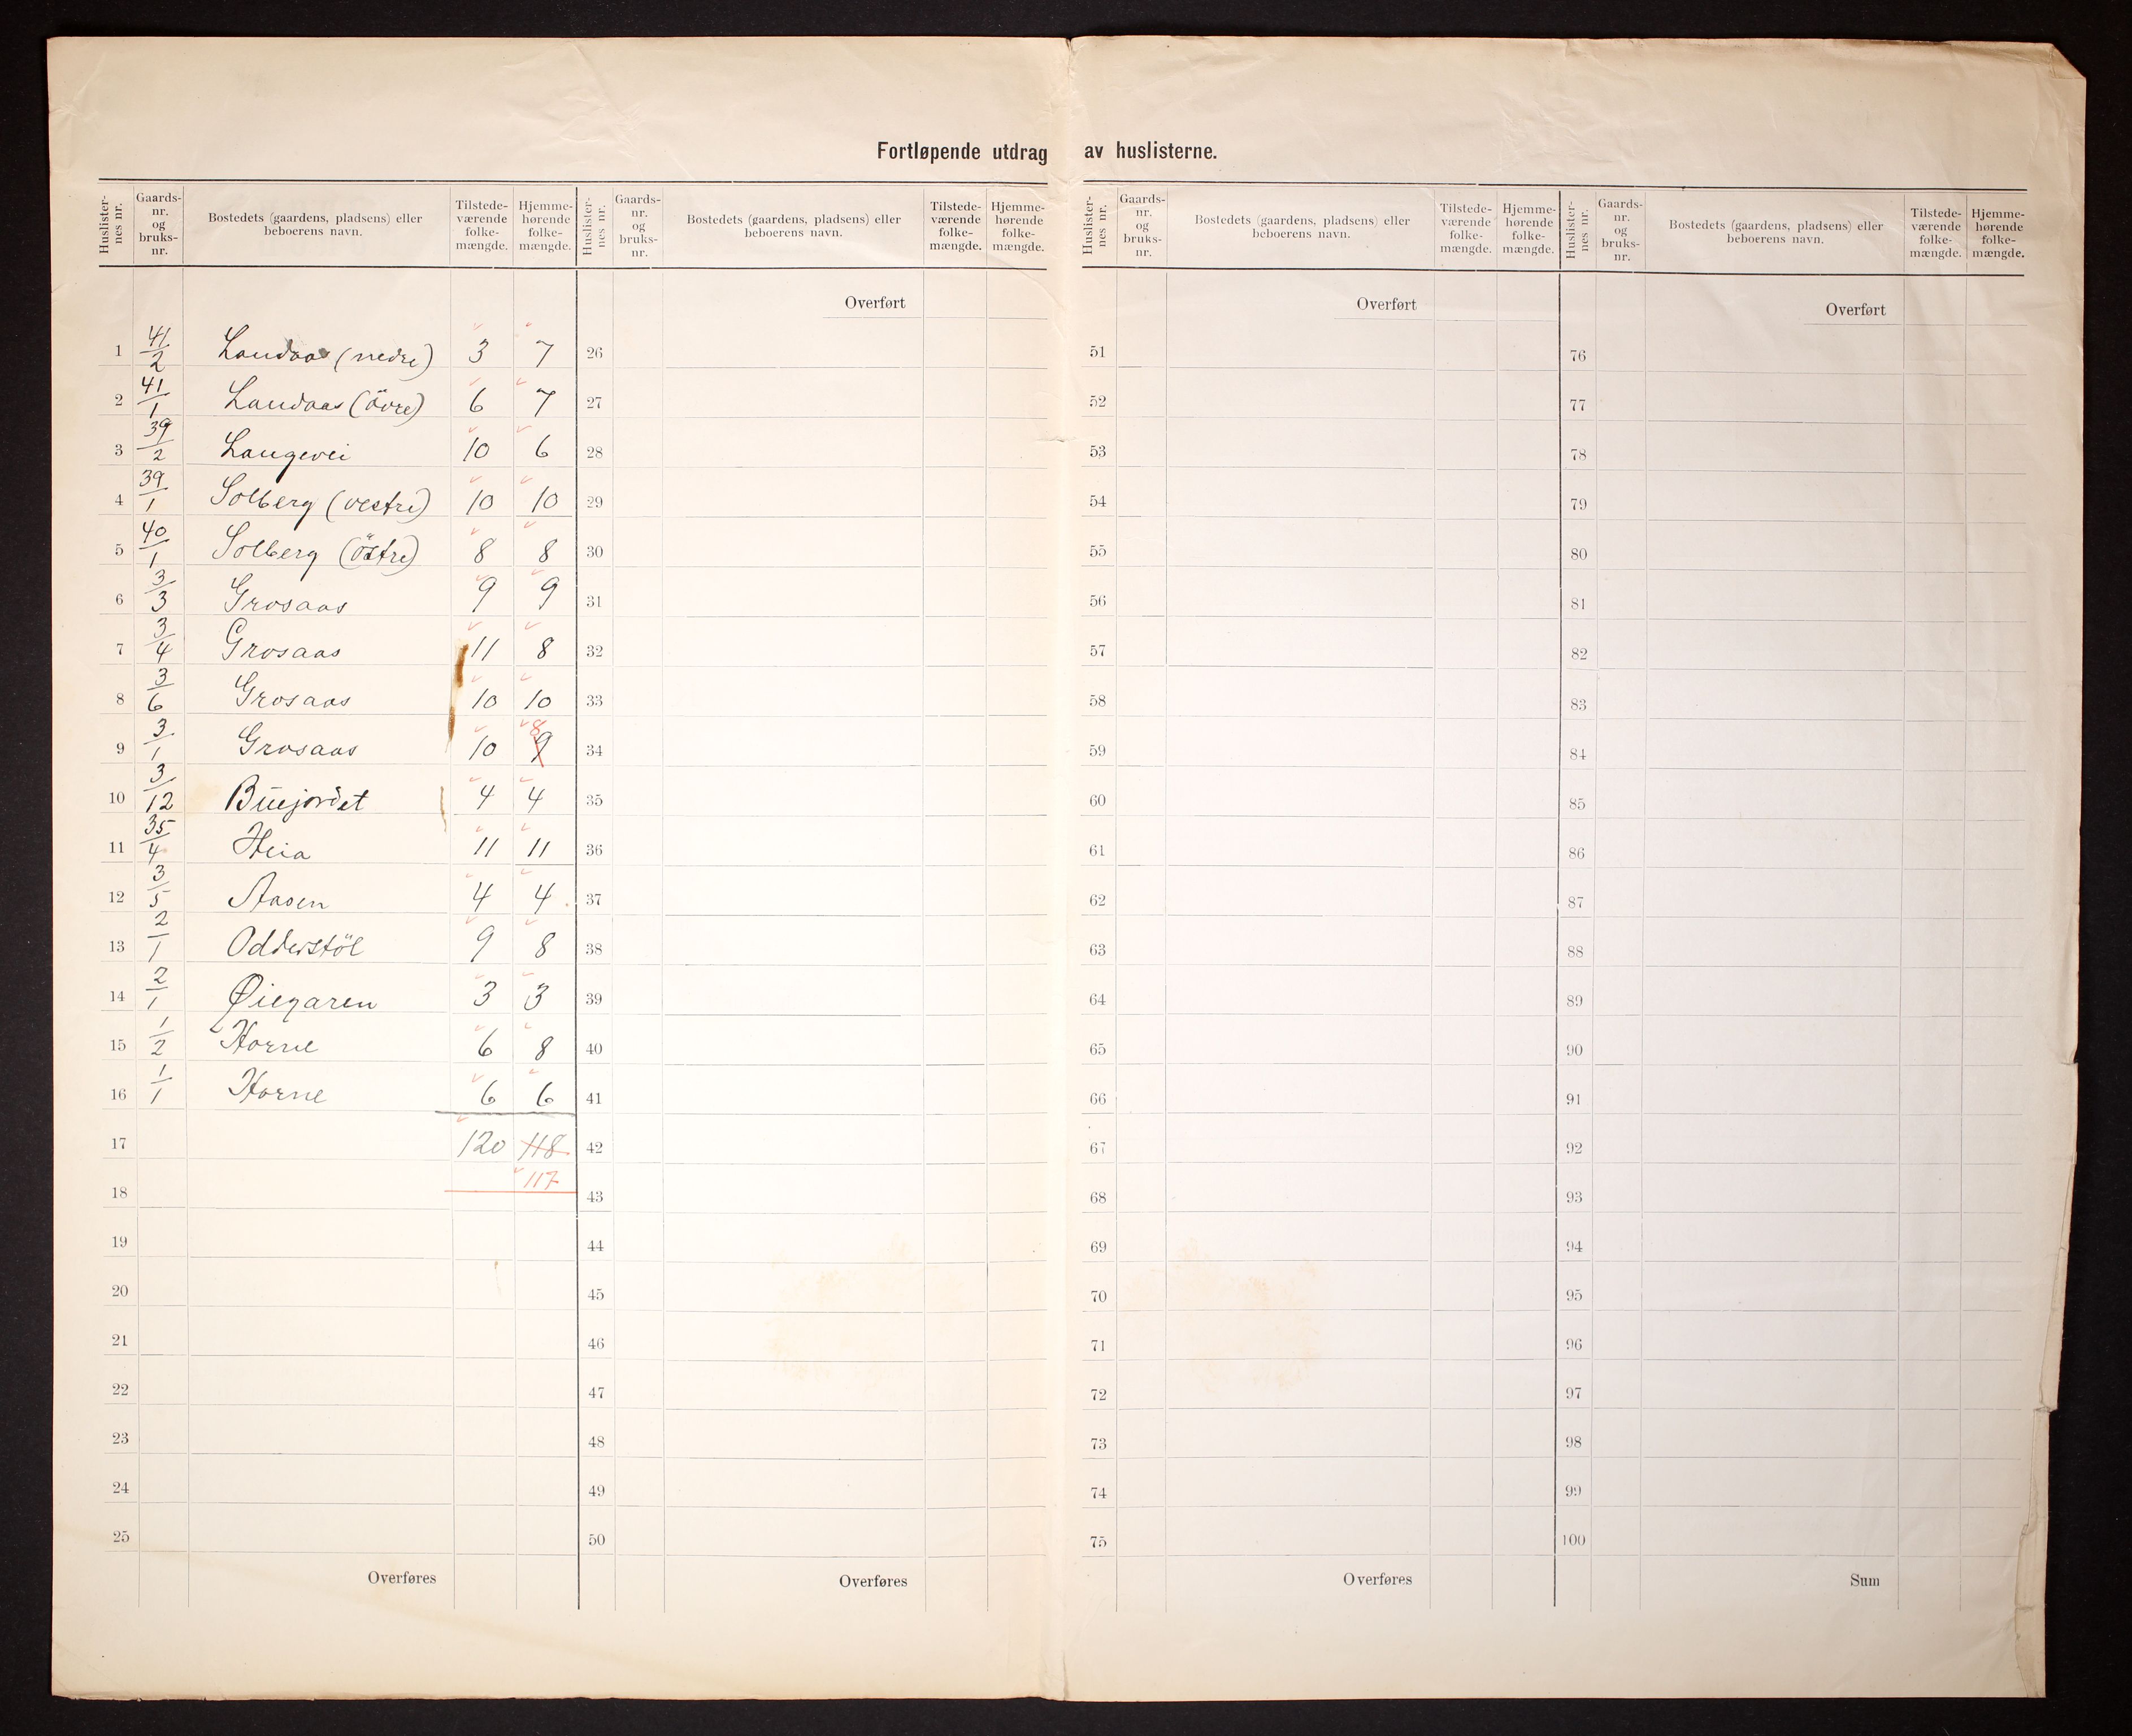 Fortløpende utdrag av huslisterne.
Huslister-nes nr. Gaards-nr. og bruks-nr. Bostedets (gaardens, pladsens) eller beboerens navn. Tilstede-værende folke-mængde. Hjemme-hørende folke-mængde.
Huslister-nes nr. Gaards-nr. og bruks-nr. Bostedets (gaardens, pladsens) eller beboerens navn. Tilstede-værende folke-mængde. Hjemme-hørende folke-mængde.
Huslister-nes nr. Gaards-nr. og bruks-nr. Bostedets (gaardens, pladsens) eller beboerens navn. Tilstede-værende folke-mængde. Hjemme-hørende folke-mængde.
Huslister-nes nr. Gaards-nr. og bruks-nr. Bostedets (gaardens, pladsens) eller beboerens navn. Tilstede-værende folke-mængde. Hjemme-hørende folke-mængde.
Overført Overført Overført
1 41/2 Landaas (nedre) 3 7 26 51 76
2 41/1 Landaas (övre) 6 7 27 52 77
3 39/2 Langevei 10 6 28 53 78
4 39/1 Solberg (vestre) 10 10 29 54 79
5 40/1 Solberg (östre) 8 8 30 55 80
6 3/3 Grosaas 9 9 31 56 81
7 3/4 Grosaas 11 8 32 57 82
8 3/6 Grosaas 10 10 33 58 83
9 3/1 Grosaas 10 9 8 34 59 84
10 3/12 Buejordet 4 4 35 60 85
11 35/4 Heia 11 11 36 61 86
12 3/5 Aasen 4 4 37 62 87
13 2/1 Odderstöl 9 8 38 63 88
14 2/1 Øiegaren 3 3 39 64 89
15 1/2 Horne 6 8 40 65 90
16 1/1 Horne 6 6 41 66 91
17 120 118 42 67 92
18 117 43 68 93
19 44 69 94
20 45 70 95
21 46 71 96
22 47 72 97
23 48 73 98
24 49 74 99
25 50 75 100
Overføres Overføres Overføres Sum